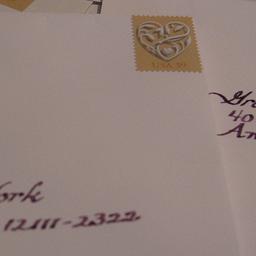 USA 39
ork
12111-2322
Gr
40
An